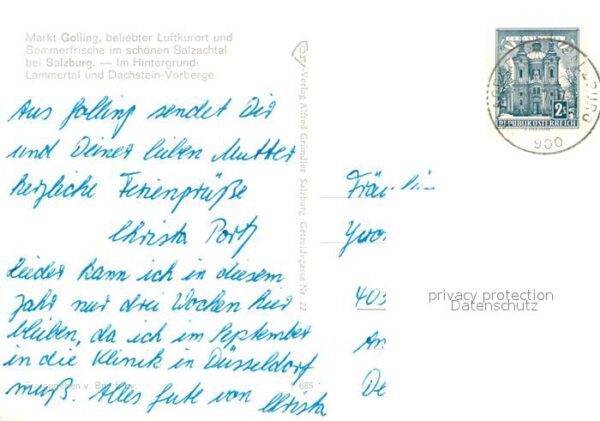 Markt Golling, beliebter Luftkurort und
Sommerfrische im schönen Salzachtal
bei Salzburg. — Im Hintergrund:
Lammertal und Dachstein-Vorberge
Aus Golling sendet Dir
und Deiner lieben Mutter
herzliche Feriengrüße
Christa Portz
leider kann ich in diesem
Jahr nur drei Wochen hier
bleiben, da ich im September
in die Klinik in Düsseldorf
muß. Alles Gute von Christa
Verlag Alfred Gründler Salzburg, Getreidegasse Nr. 22
685
2S
REPUBLIK ÖSTERREICH
900
Fräulein
40
An
De
privacy protection
Datenschutz